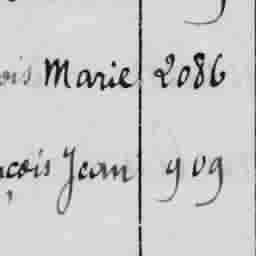 ois Marie 2086
çois Jean 909